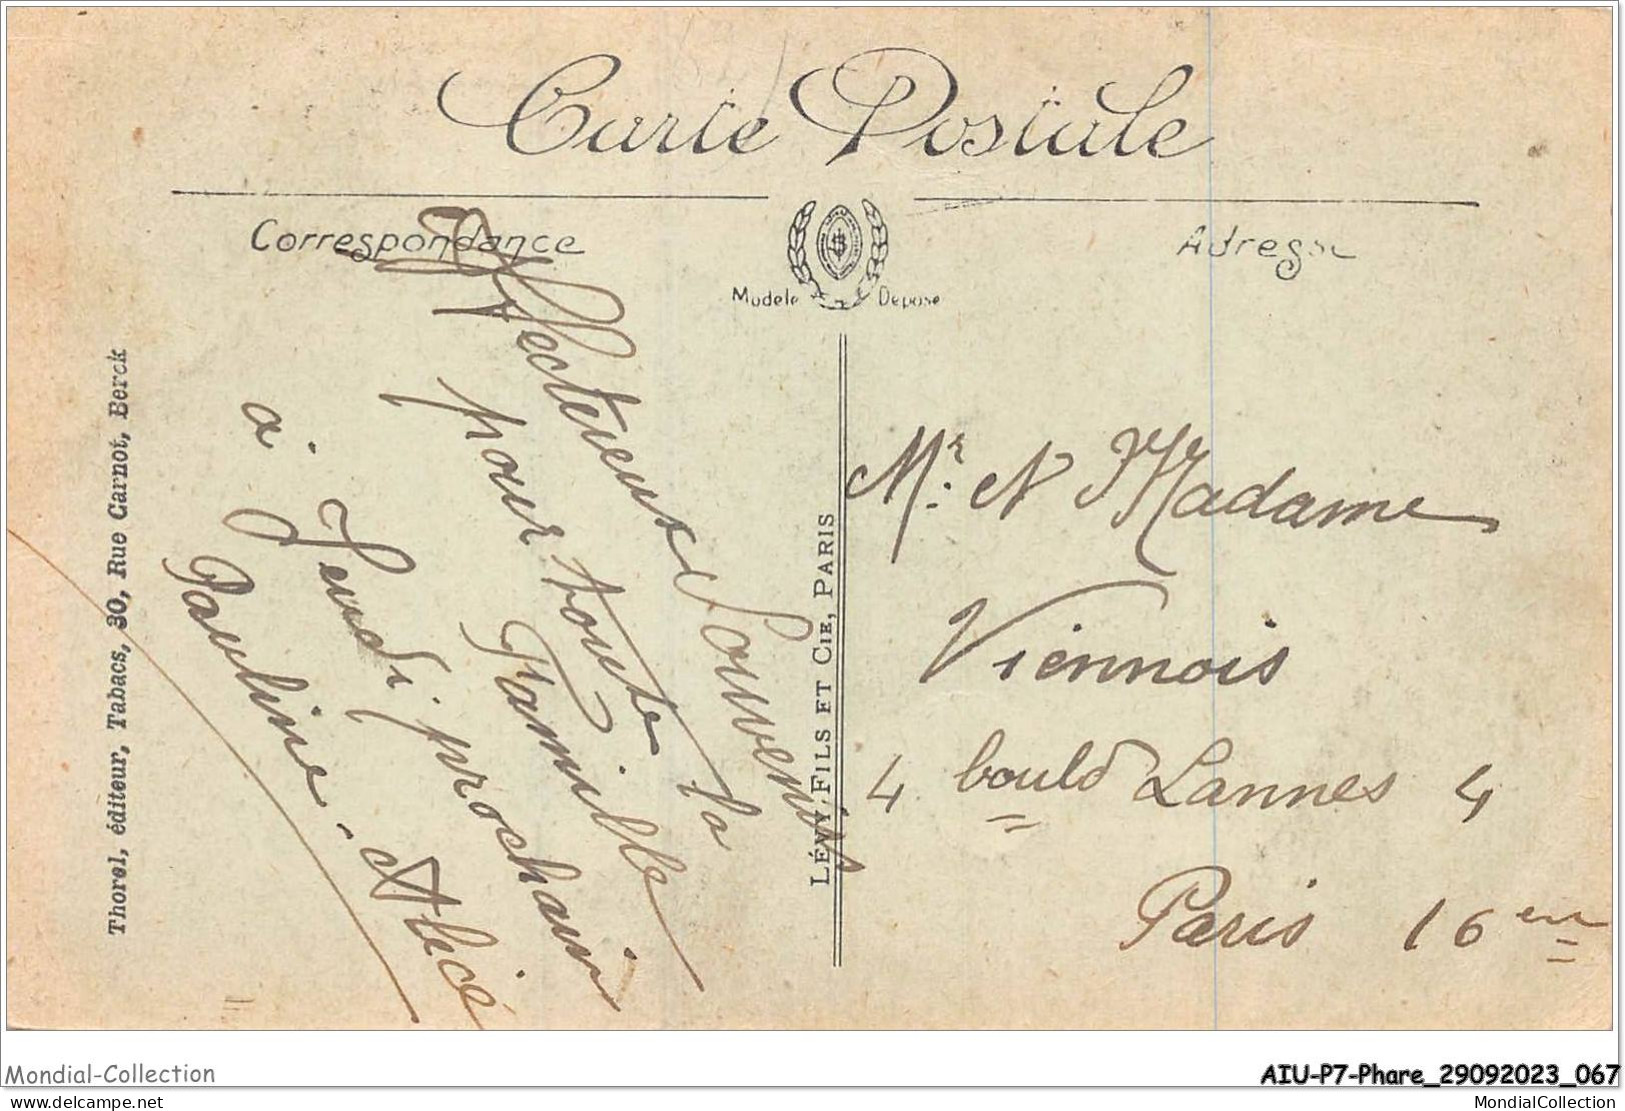 Carte Postale
Correspondance
Adresse
Modèle Déposé
Thorel, éditeur, Tabacs, 30, Rue Carnot, Berck
LÉVY, FILS ET CIE, PARIS
Affectueux Souvenirs
pour toute la
Famille
à Jeudi prochain
Pauline - Alice
Mr. et Madame
Viennois
4 bould Lannes 4
Paris 16 em
Mondial-Collection
AIU-P7-Phare_29092023_067
www.delcampe.net
MondialCollection